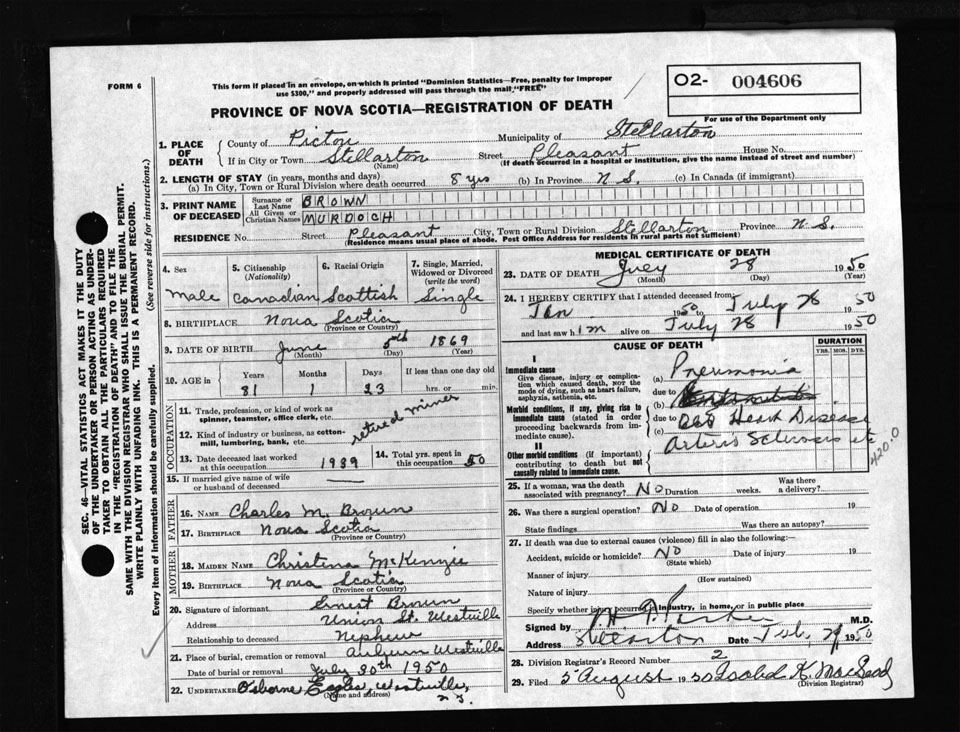 FORM 6
This form if placed in an envelope, on which is printed "Dominion Statistics—Free, penalty for improper
use $300," and properly addressed will pass through the mail "FREE"
O2- 004606
For use of the Department only
PROVINCE OF NOVA SCOTIA—REGISTRATION OF DEATH
1. PLACE OF DEATH
County of Pictou Municipality of Stellarton
If in City or Town Stellarton Street Pleasant House No.
(Name) (If death occurred in a hospital or institution, give the name instead of street and number)
2. LENGTH OF STAY (in years, months and days)
(a) In City, Town or Rural Division where death occurred 8 yrs (b) In Province N S. (c) In Canada (if immigrant)
3. PRINT NAME OF DECEASED
Surname or Last Name BROWN
All Given or Christian Names MURDOCH
RESIDENCE No. Street Pleasant City, Town or Rural Division Stellarton Province N S.
(Residence means usual place of abode. Post Office Address for residents in rural parts not sufficient)
4. Sex
Male
5. Citizenship
(Nationality)
Canadian
6. Racial Origin
Scottish
7. Single, Married,
Widowed or Divorced
(write the word)
Single
8. BIRTHPLACE Nova Scotia
(Province or Country)
9. DATE OF BIRTH June 5th 1869
(Month) (Day) (Year)
10. AGE in
Years Months Days If less than one day
81 1 23 hrs. or min.
OCCUPATION
11. Trade, profession, or kind of work as
spinner, teamster, office clerk, etc.
12. Kind of industry or business, as cotton-
mill, lumbering, bank, etc.
retired miner
13. Date deceased last worked
at this occupation 1939
14. Total yrs. spent in
this occupation 50
15. If married give name of wife
or husband of deceased —
FATHER
16. NAME Charles M. Brown
17. BIRTHPLACE Nova Scotia
(Province or Country)
MOTHER
18. MAIDEN NAME Christena McKenzie
19. BIRTHPLACE Nova Scotia
(Province or Country)
20. Signature of informant Ernest Brown
Address Union St. Westville
Relationship to deceased Nephew
21. Place of burial, cremation or removal Auburn Westville
Date of burial or removal July 30th 1950
22. UNDERTAKER Osborne Eagles, Westville,
(Name and address)
n s.
MEDICAL CERTIFICATE OF DEATH
23. DATE OF DEATH July 28 1950
(Month) (Day) (Year)
24. I HEREBY CERTIFY that I attended deceased from:
Jan 1950 to July 28 1950
and last saw him alive on July 28 1950
CAUSE OF DEATH
DURATION
YRS. MOS. DYS.
I
Immediate cause
Give disease, injury or complica-
tion which caused death, NOT the
mode of dying, such as heart failure,
asphyxia, asthenia, etc.
Morbid conditions, if any, giving rise to
immediate cause (stated in order
proceeding backwards from im-
mediate cause).
II
Other morbid conditions (if important)
contributing to death but not
causally related to immediate cause.
(a) Pneumonia
due to
(b)
due to Old Heart Disease
(c) Arterio Sclerosis etc
4200
25. If a woman, was the death
associated with pregnancy? No Duration weeks. Was there
a delivery?
26. Was there a surgical operation? No Date of operation 19
State findings Was there an autopsy?
27. If death was due to external causes (violence) fill in also the following:—
Accident, suicide or homicide? No Date of injury 19
(State which)
Manner of injury
(How sustained)
Nature of injury
Specify whether injury occurred in industry, in home, or in public place
Signed by H. T. Parker M.D.
Address Stellarton Date Jul. 29 1950
28. Division Registrar's Record Number 2
29. Filed 5 August 1950 Isobel K. MacLeod
(Division Registrar)
SEC. 46—VITAL STATISTICS ACT MAKES IT THE DUTY
OF THE UNDERTAKER OR PERSON ACTING AS UNDER-
TAKER TO OBTAIN ALL THE PARTICULARS REQUIRED
IN THE "REGISTRATION OF DEATH" AND TO FILE THE
SAME WITH THE DIVISION REGISTRAR WHO SHALL ISSUE THE BURIAL PERMIT.
WRITE PLAINLY WITH UNFADING INK. THIS IS A PERMANENT RECORD.
Every item of information should be carefully supplied. (See reverse side for instructions.)